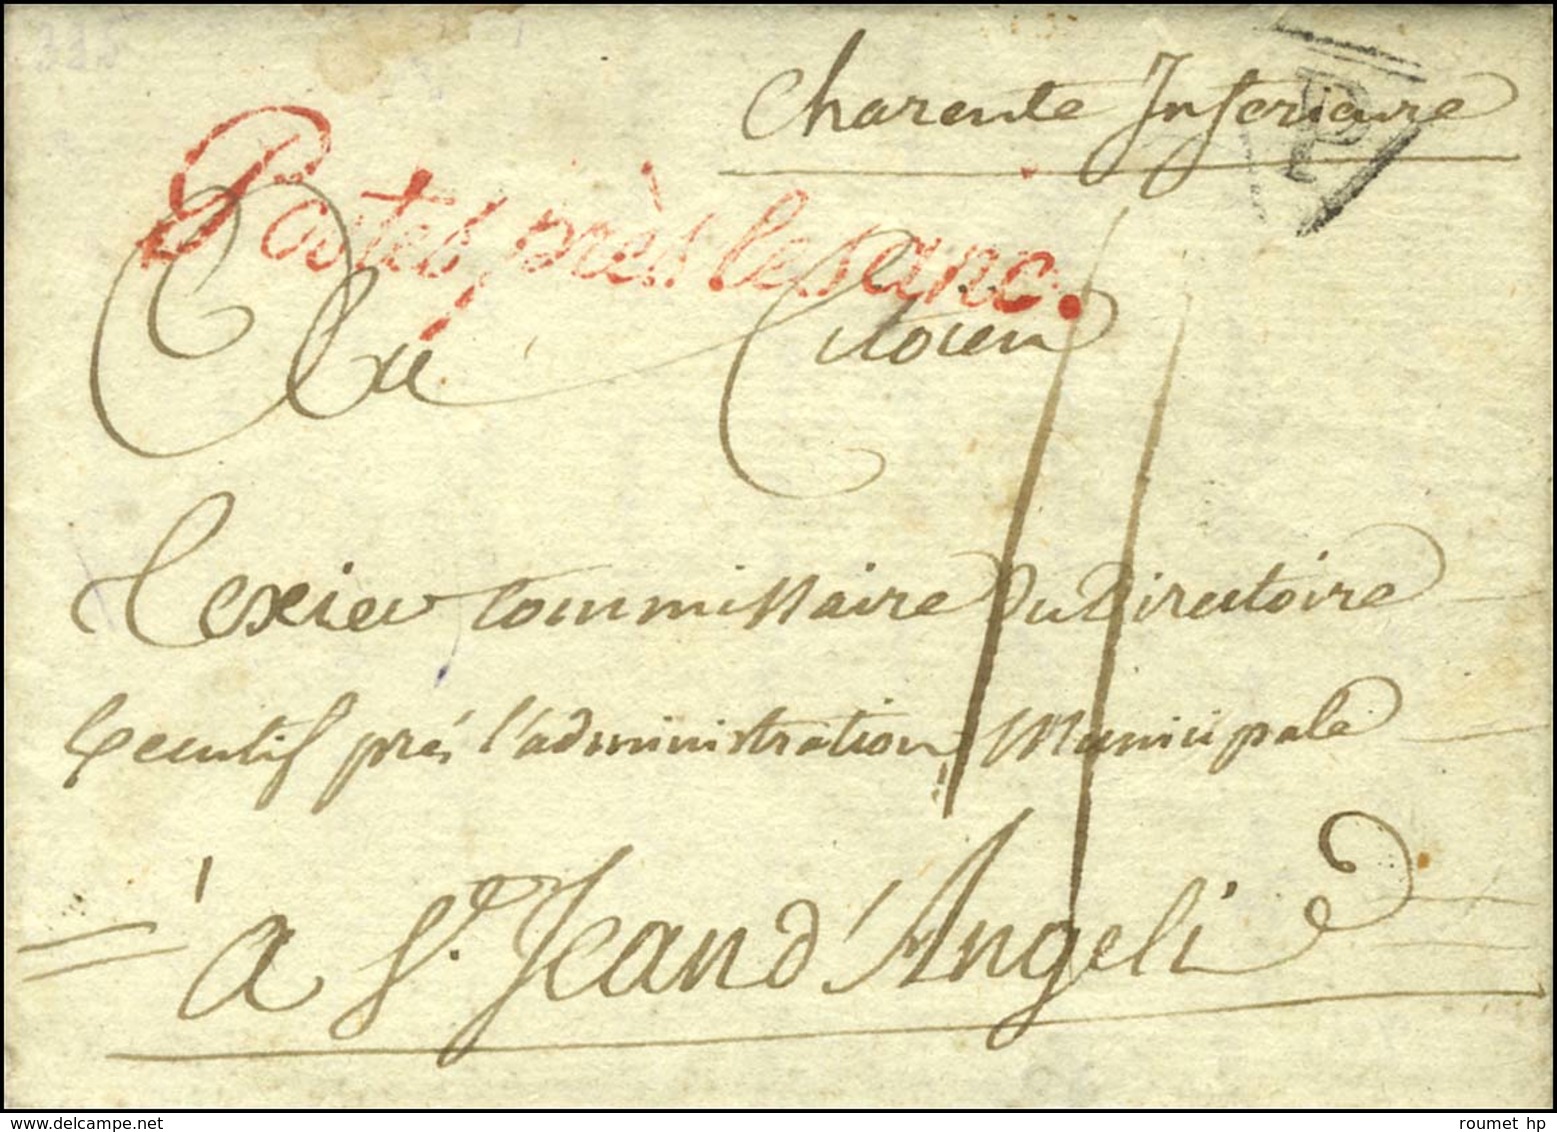 Charente Inferieure
P
Postes, près le sanc.
Au Citoien
Texier Commissaire Du Directoire
Executif prés l'administration Municipale
à St. Jean d'Angeli
11
delcampe.net
roumet hp